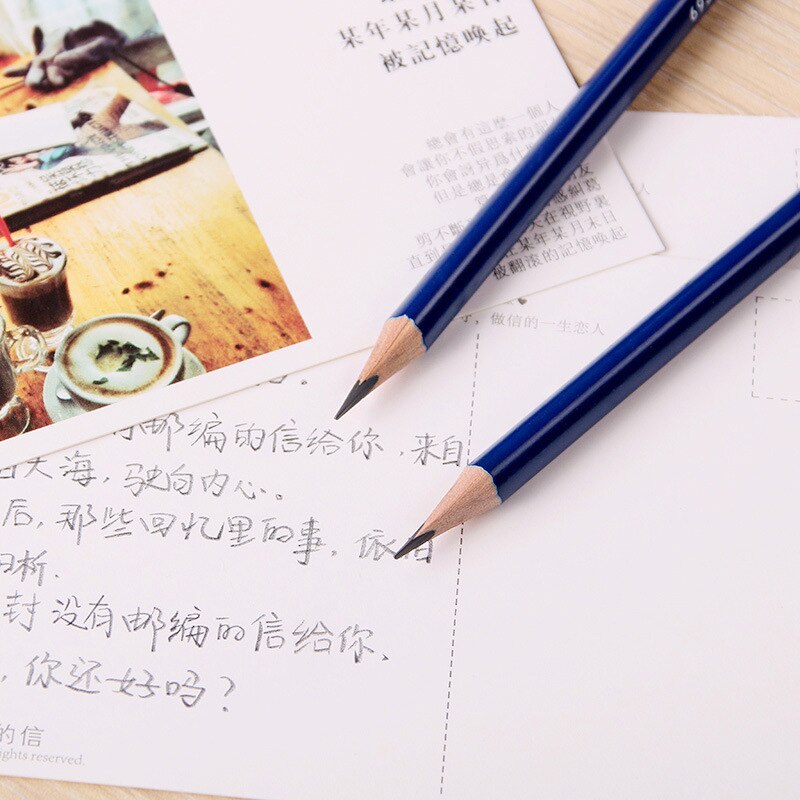 某年某月某日
被記憶喚起
總會有這麼一個人
會讓你不假思索的記
你會訝異爲什
但是總是 友
感糾葛
剪不斷 天在視野裏
直到 在某年某月末日
被翻滾的記憶喚起
69
做信的一生恋人
邮编的信给你，来自
大海，驶向内心。
后，那些回忆里的事，依旧
析．
封没有邮编的信给你，
，你还好吗？
的信
ights reserved.